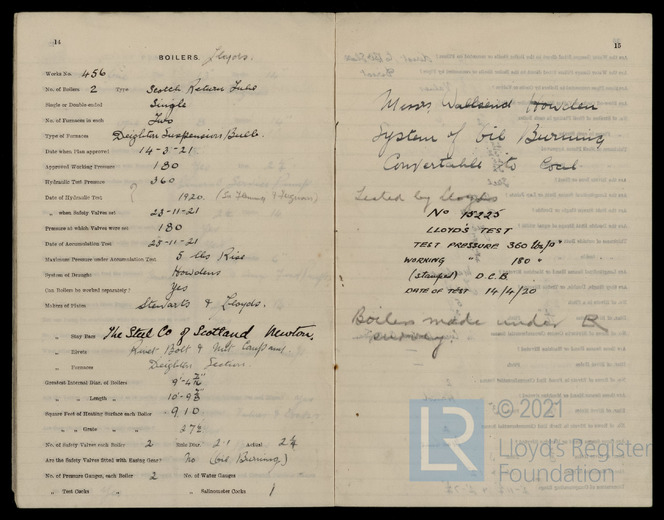 14
BOILERS. Lloyds.
Works No. 456
No. of Boilers 2 Type Scotch Return Tube
Single or Double-ended Single
No. of Furnaces in each Two
Type of Furnaces Deighton Suspension Bulb.
Date when Plan approved 14-3-21
Approved Working Pressure 180
Hydraulic Test Pressure 360
Date of Hydraulic Test 1920. (So Fleming & Ferguson)
„ when Safety Valves set 23-11-21
Pressure at which Valves were set 180
Date of Accumulation Test 23-11-21
Maximum Pressure under Accumulation Test 5 lbs Rise
System of Draught Howdens
Can Boilers be worked separately? Yes
Makers of Plates Stewarts & Lloyds.
„ Stay Bars The Steel Co of Scotland Newton.
„ Rivets Rivet Bolt & Nut Company.
„ Furnaces Deighton
Greatest Internal Diam. of Boilers 9'-4
„ „ Length „ 10'-9
Square Feet of Heating Surface each Boiler 910
„ „ Grate „ 27½
No. of Safety Valves each Boiler 2 Rule Diar. 2·1 actual 2¼
Are the Safety Valves fitted with Easing Gear? No (Oil Burning)
No. of Pressure Gauges, each Boiler 2 No. of Water Gauges
„ Test Cocks „ „ Salinometer Cocks 1
15
Messrs Wallsend Howden
System of Oil Burning
Convertable to Coal
Tested by Lloyds
No 15225
LLOYD'S TEST
TEST PRESSURE 360 lbs/□"
WORKING " 180 "
(stamped) D.C.B.
DATE OF TEST 14/4/20
Boilers made under
survey.
LR
© 2021
Lloyd's Register
Foundation